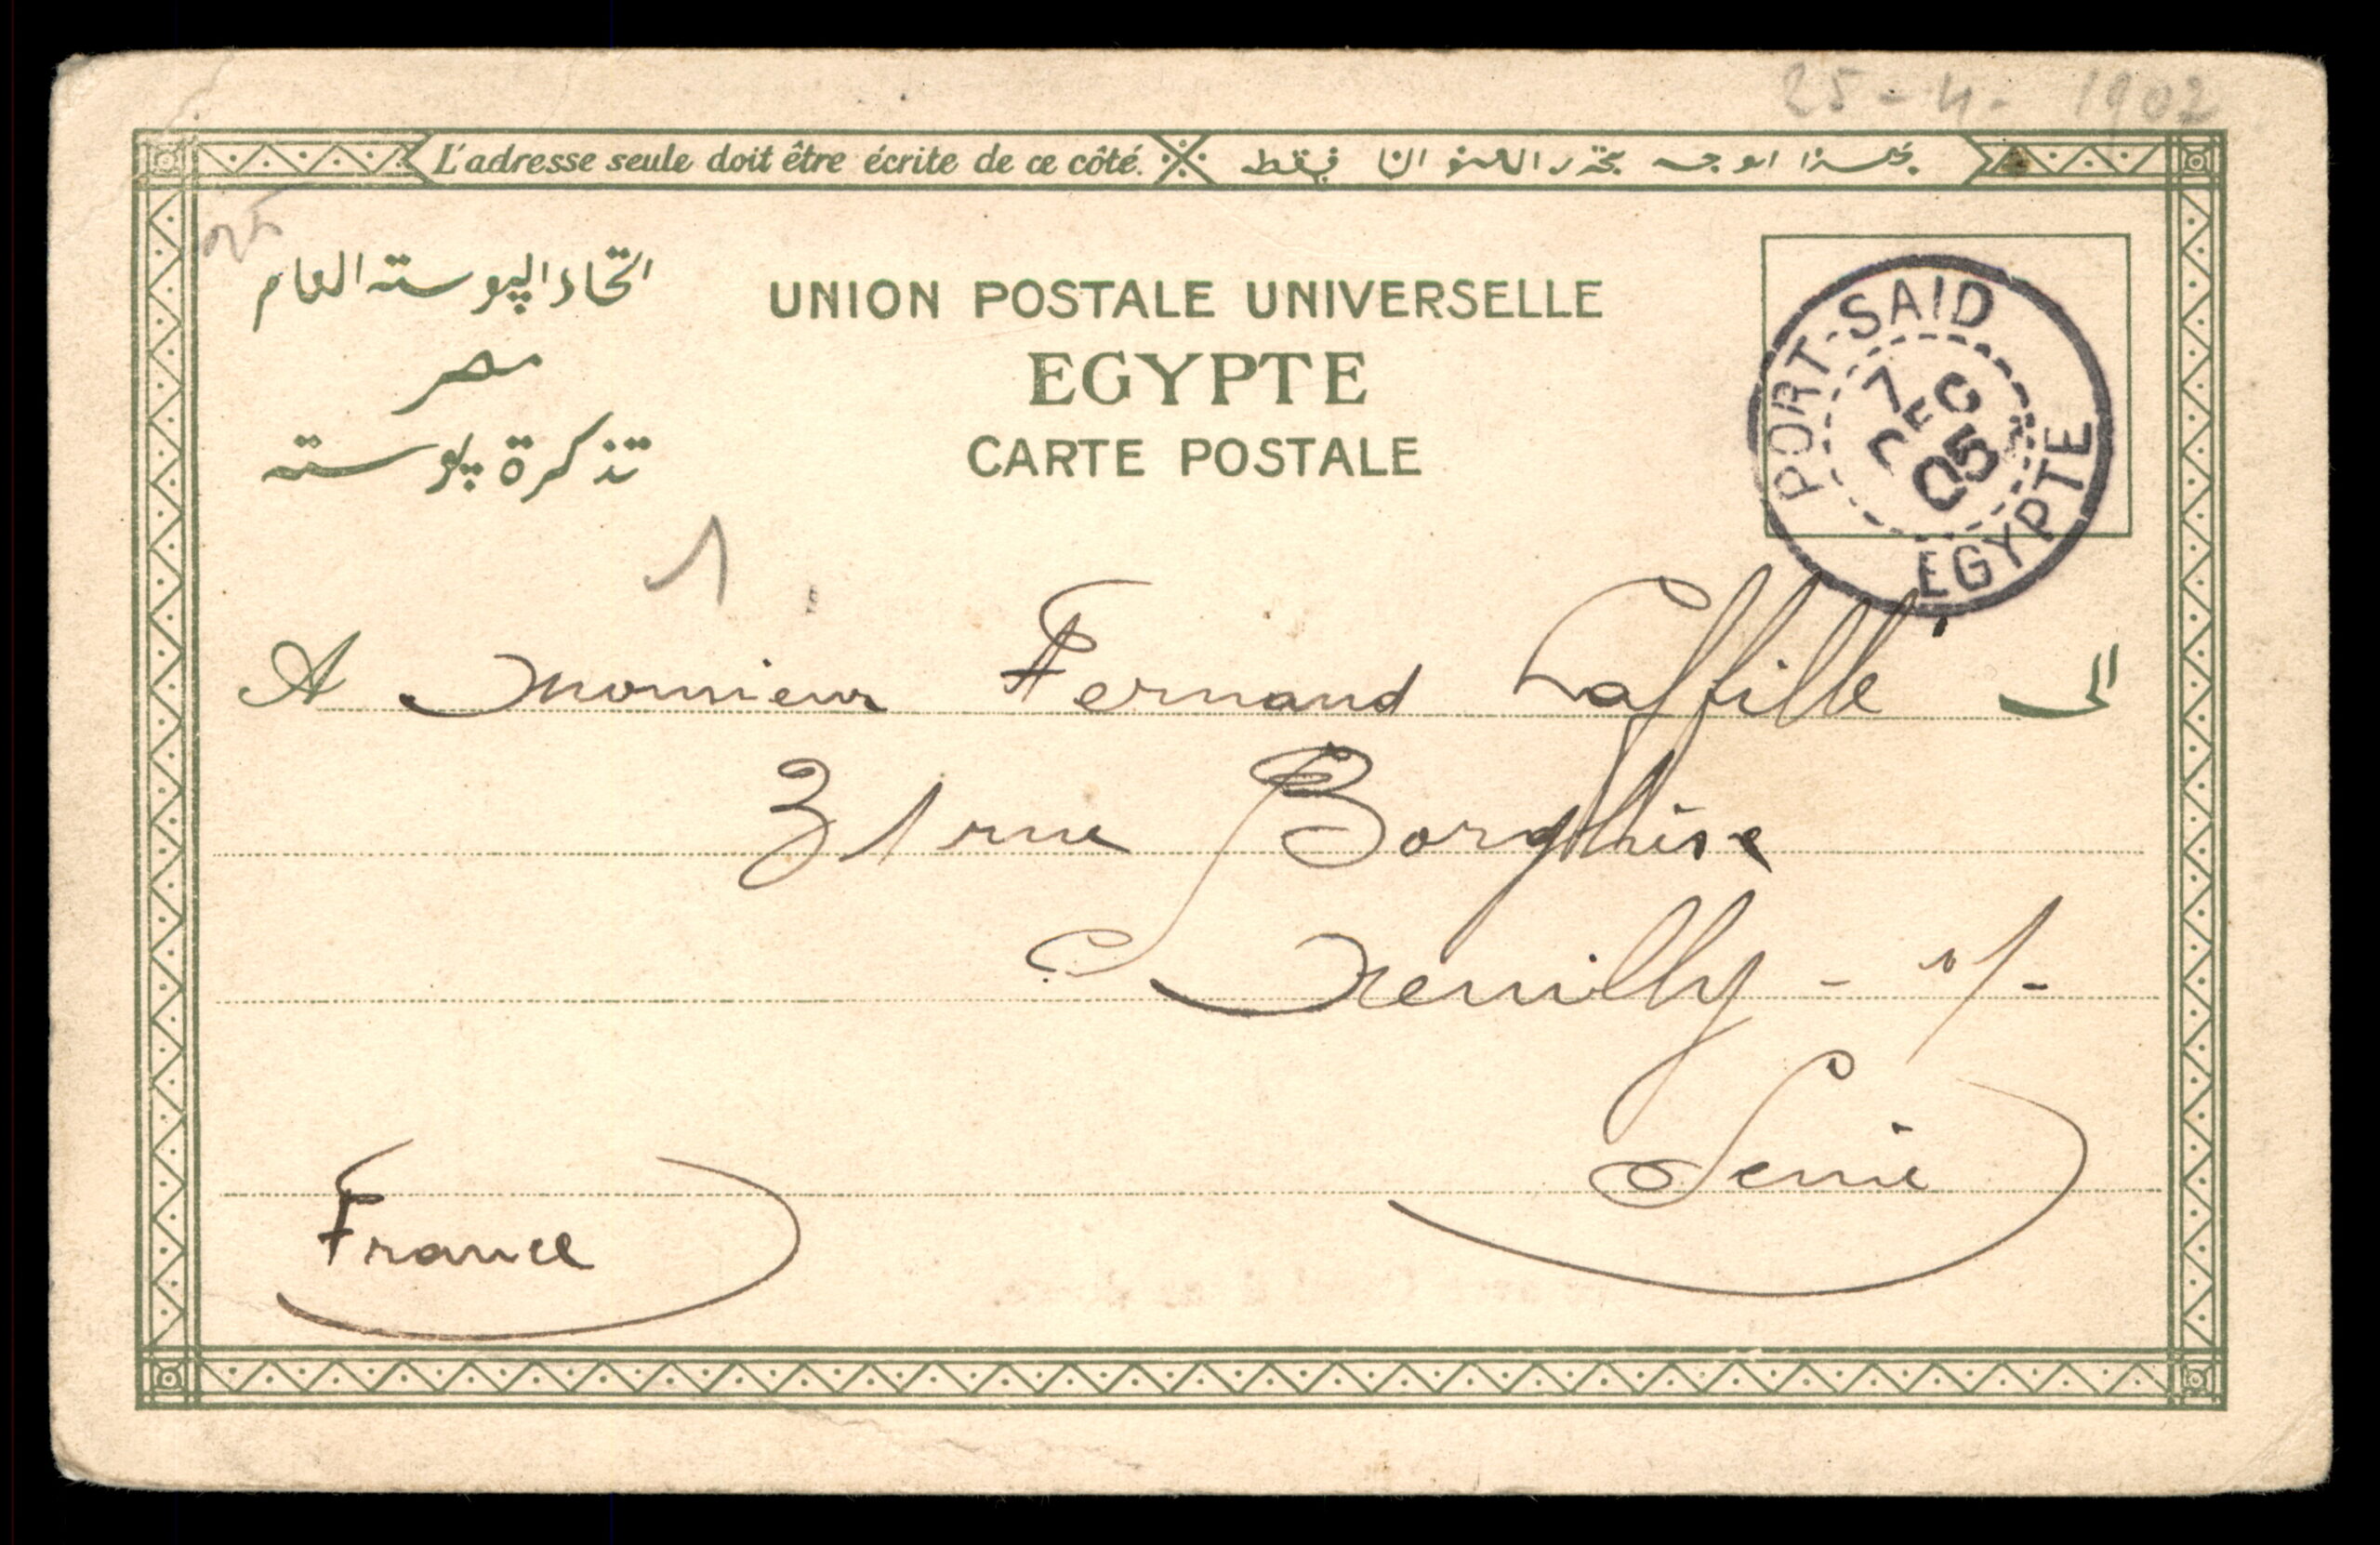 25 - 4 - 1902
L'adresse seule doit être écrite de ce côté.
فقط
اتحاد البوسته العام
مصر
تذكرة بوسته
UNION POSTALE UNIVERSELLE
EGYPTE
CARTE POSTALE
PORT-SAID
7
DEC
05
EGYPTE
1
A Monsieur Fernand Laffillé الى
31 rue Borghèse
Neuilly - s/-
Seine
France